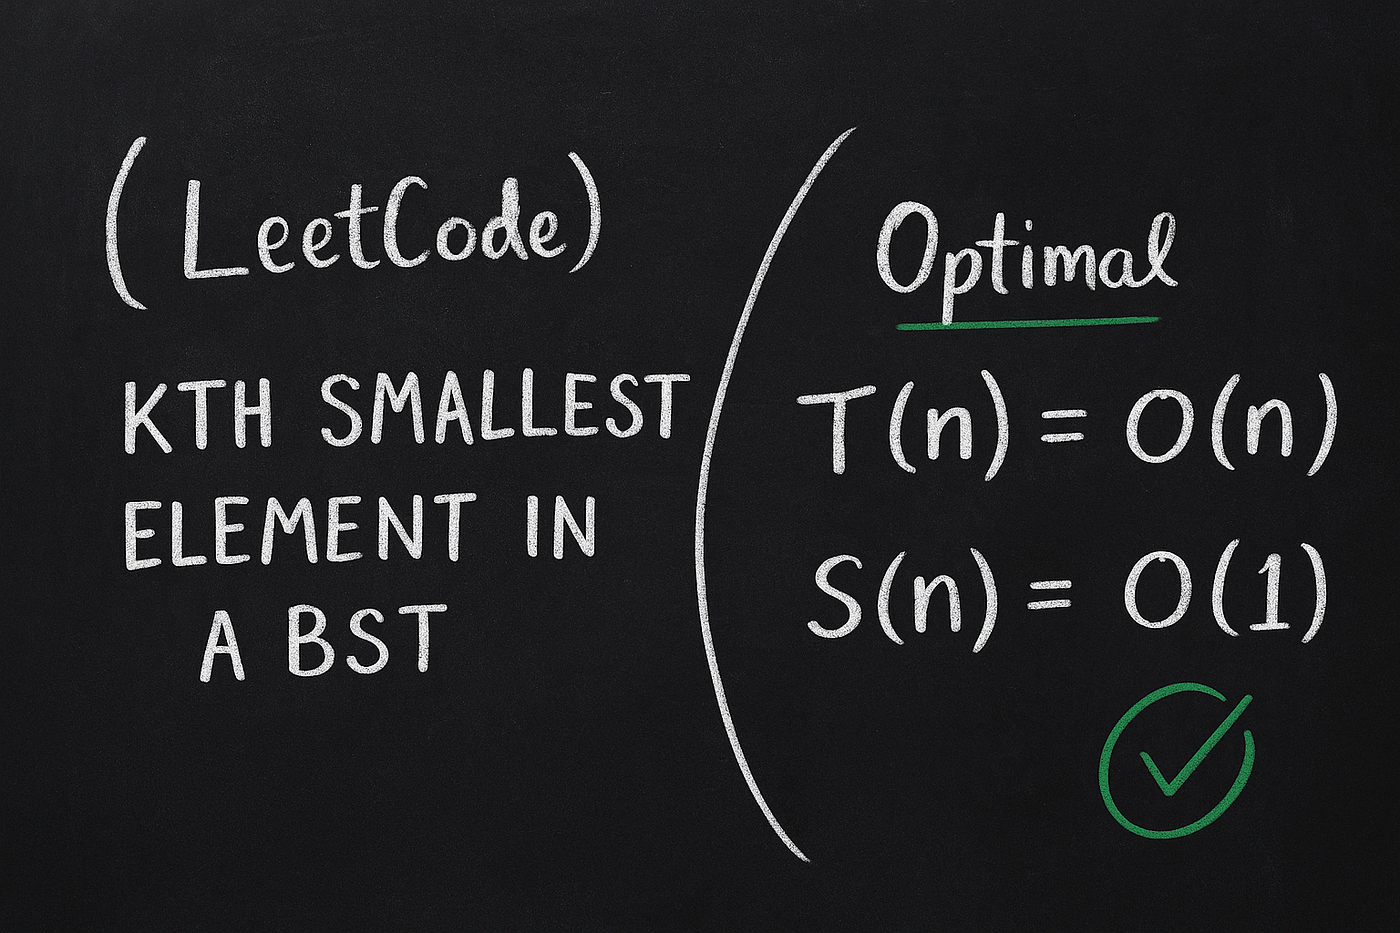 (LeetCode)
KTH SMALLEST
ELEMENT IN
A BST
Optimal
T(n) = O(n)
S(n) = O(1)